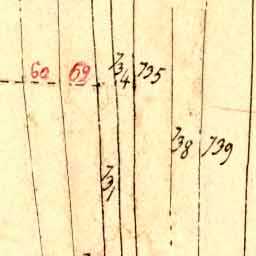 60 69 734 735
738 739
731